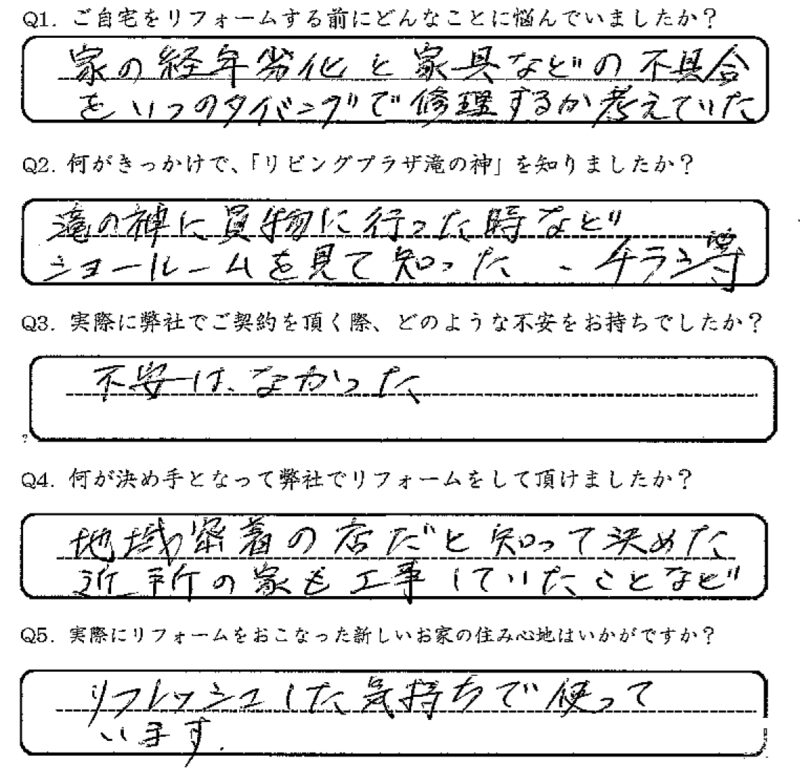 Q1. ご自宅をリフォームする前にどんなことに悩んでいましたか?
家の経年劣化と家具などの不具合
をいつのタイミングで修理するか考えていた
Q2. 何がきっかけで、「リビングプラザ滝の神」を知りましたか?
滝の神に買物に行った時など
ショールームを見て知った、チラシ等
Q3. 実際に弊社でご契約を頂く際、どのような不安をお持ちでしたか?
不安は、なかった
Q4. 何が決め手となって弊社でリフォームをして頂けましたか?
地域密着の店だと知って決めた
近所の家も工事していたことなど
Q5. 実際にリフォームをおこなった新しいお家の住み心地はいかがですか?
リフレッシュした気持ちで使って
います.